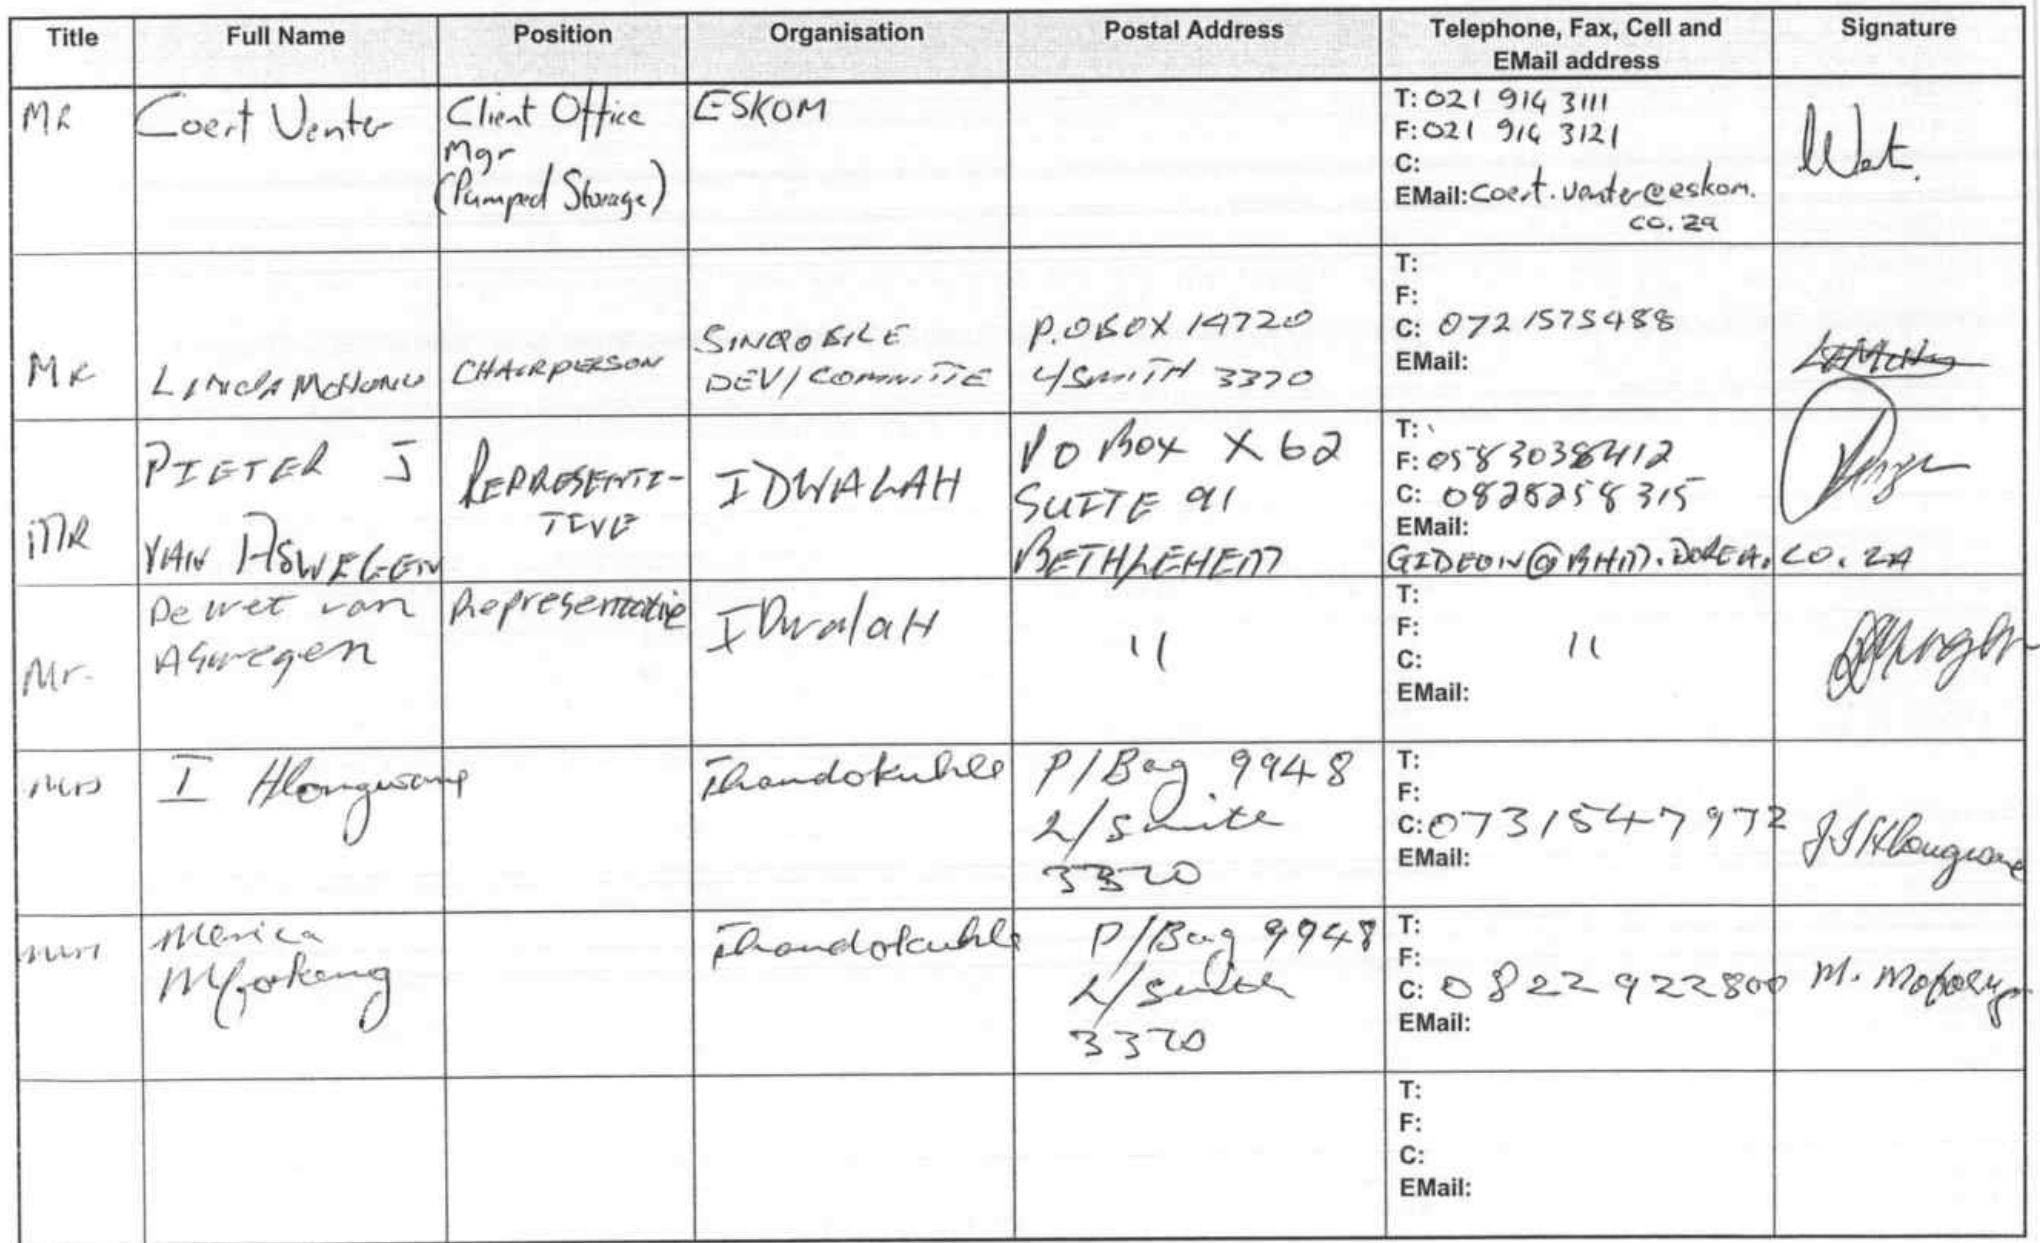 Title Full Name Position Organisation Postal Address Telephone, Fax, Cell and EMail address Signature
MR Coert Venter Client Office Mgr (Pumped Storage) ESKOM
T: 021 914 3111
F: 021 914 3121
C:
EMail: Coert.Venter@eskom.
co.za
MR CHAIRPERSON SINQOBILE
DEV/COMMITTE
P.O BOX 14720
L/SMITH 3370
T:
F:
C: 0721575488
EMail:
MR PIETER J
VAN ASWEGEN
REPRESENTI-
TIVE
IDWALAH
PO Box X62
SUITE 91
BETHLEHEM
T:
F: 0583038412
C: 0828258315
EMail:
GIDEON@BHM.DOREA.CO.ZA
Mr. De wet van
Aswegen
Representative
IDwalaH
"
T:
F:
C:
"
EMail:
Mrs I Hlongwane
Thandokuhle
P/Bag 9948
L/Smite
3370
T:
F:
C: 0731547972
EMail:
Thandokuhle
P/Bag 9948
3370
T:
F:
C: 0822922800
EMail:
T:
F:
C:
EMail: